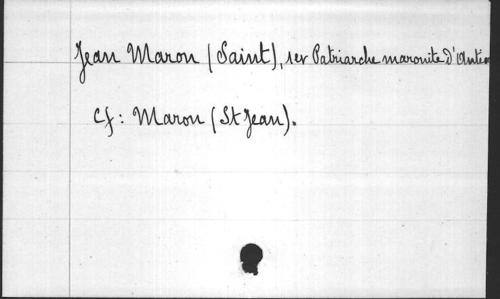 Jean Maron (Saint), 1er Patriarche maronite d'Antio
Cf: Maron (St Jean).